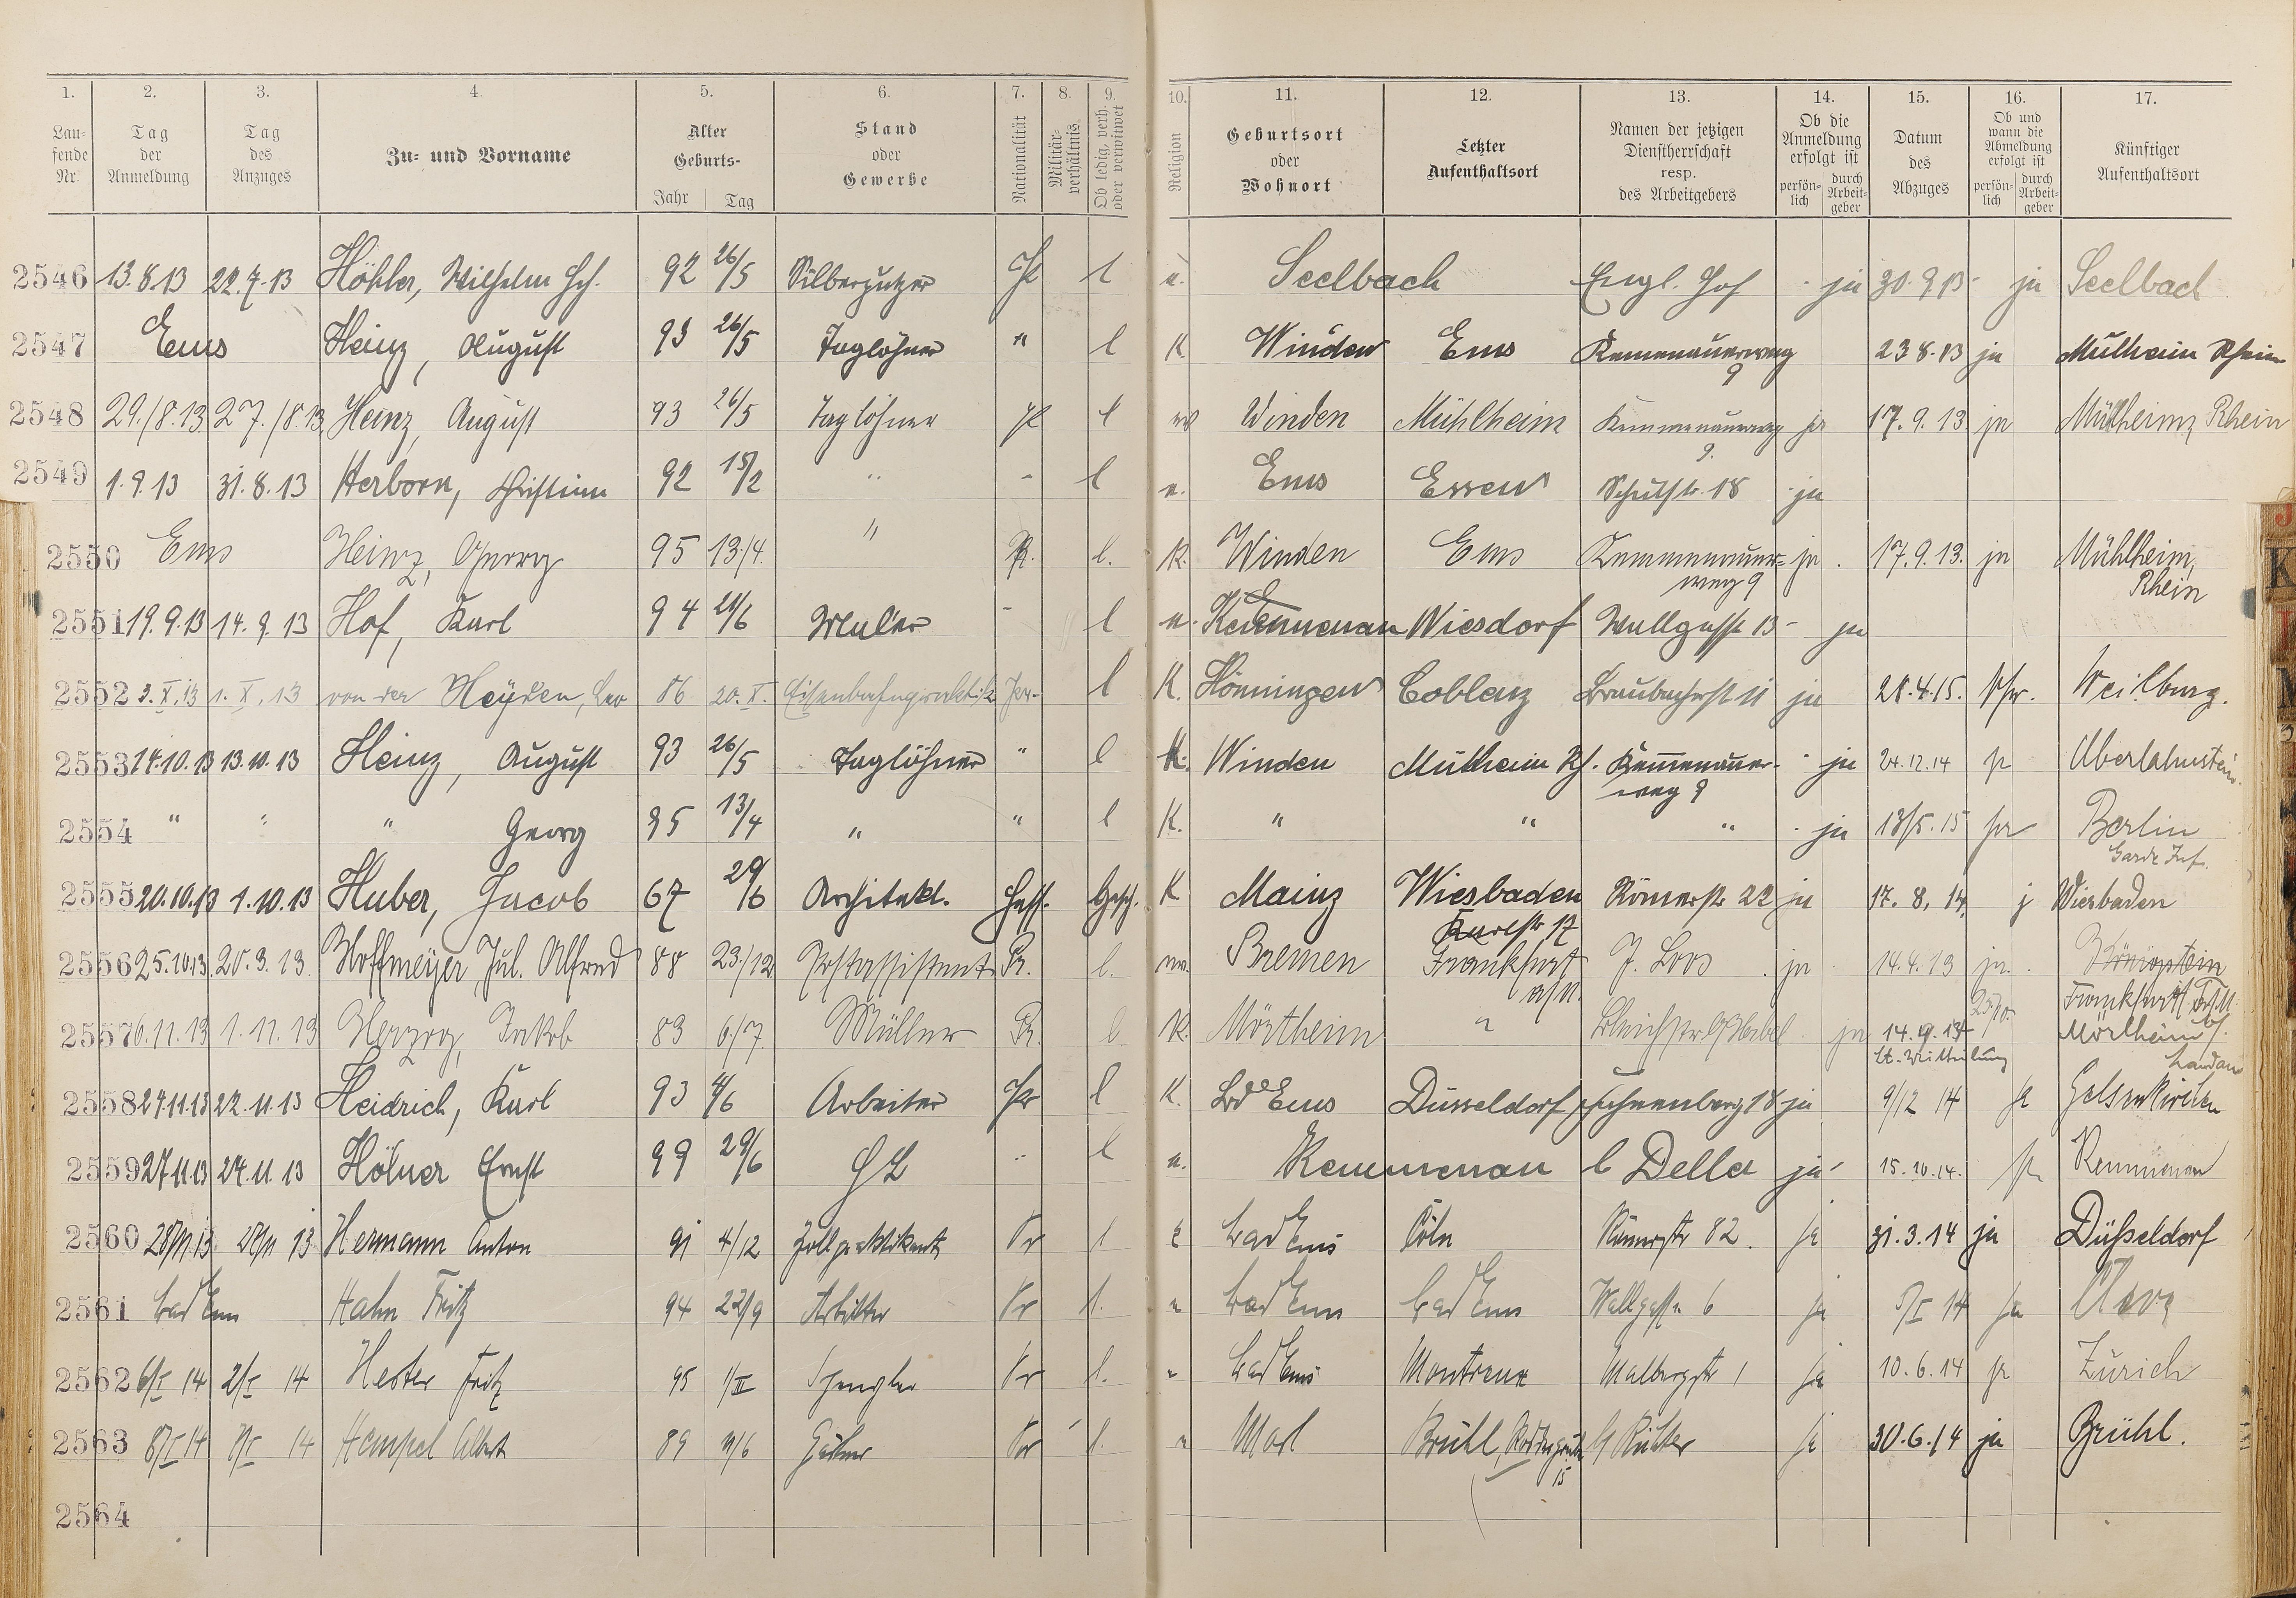 1. 2. 3. 4. 5. 6. 7. 8. 9. 10. 11. 12. 13. 14. 15. 16. 17.
Laufende Nr. Tag der Anmeldung Tag des Anzuges Zu- und Vorname Alter Geburts- Jahr Tag Stand oder Gewerbe Nationalität Militärverhältnis Ob ledig, verh. oder verwitwet Religion Geburtsort oder Wohnort Letzter Aufenthaltsort Namen der jetzigen Dienstherrschaft resp. des Arbeitgebers Ob die Anmeldung erfolgt ist persönlich durch Arbeitgeber Datum des Abzuges Ob und wann die Abmeldung erfolgt ist persönlich durch Arbeitgeber Künftiger Aufenthaltsort
2546 13.8.13 22.7.13 Höhler, Wilhelm Hch. 92 26/5 Silberputzer Pr l Seelbach Engl. Hof ja 30.9.13 ja Seelbach
2547 Ems Heinz, August 93 26/5 Taglöhner " l K Winden Ems Kemenauerweg 9 23 8.13 ja Mülheim Rhein
2548 29./8.13 27./8.13 Heinz, August 93 26/5 Taglöhner Pr l Winden Mühlheim Kemmenauerweg 9. ja 17.9.13 ja Mülheim, Rhein
2549 1.9.13 31.8.13 Herborn, Christian 92 15/2 " - l Ems Essen Schulstr. 18 ja
2550 Ems Heinz, Georg 95 13./4. " Pr. l. K. Winden Ems Kemmenauerweg 9 ja 17.9.13. ja Mühlheim, Rhein
2551 19.9.13 14.9.13 Hof, Karl 94 21/6 Maler - l Kemmenau Wiesdorf Wallgasse 13 ja
2552 3.X.13 1.X.13 von der Heyden, Leo 86 20.X. Eisenbahnpraktik. l K. Hönningen Coblenz Braubacherstr 11 ja 28.4.15. Weilburg.
2553 14.10.13 13.10.13 Heinz, August 93 26/5 Taglöhner " l K. Winden Mülheim Rh. Kemenauerweg 9 ja 24.12.14 ja Oberlahnstein.
2554 " " " Georg 95 13/4 " " l K. " " " ja 13/5.15 ja Berlin Garde Inf.
2555 20.10.13 1.10.13 Huber, Jacob 67 29/6 Architekt. Hess. Gesch. K Mainz Wiesbaden Karlstr 17 Römerstr 22 ja 17.8.14. j Wiesbaden
2556 25.10.13. 20.3.13. Hoffmeyer, Jul. Alfred 88 23./12 Postassistent Pr. l. Bremen Frankfurt a/M. J. Loos ja 14.4.13 ja. Königstein Frankfurt
2557 6.11.13 1.11.13 Herzog, Jakob 83 6./7. Müller l. K. Mörlheim " ja Mörlheim b/ Landau
2558 24.11.13 22.11.13 Heidrich, Karl 93 4/6 Arbeiter Pr l K. Bd Ems Düsseldorf 18 ja 9/12 14 ja Gelsenkirchen
2559 27.11.13 24.11.13 Hölner Ernst 99 29/6 " l Kemmenau b Deller ja 15.10.14. ja Kemmenau
2560 28/11 13 28/11 13 Hermann Anton 91 4/12 Zollpraktikant Pr l Bad Ems Cöln Römerstr 82. ja 31.3.14 ja Düsseldorf
2561 Bad Ems Hahn Fritz 94 22/9 Arbeiter Pr l. Bad Ems Bad Ems Wallgasse 6 ja 5/I 14 ja Cleve
2562 6/I 14 2/I 14 Hester Fritz 95 1/II Spengler Pr l. Bad Ems Montreux Malbergstr 1 ja 10.6.14 ja Zürich
2563 8/I 14 7/I 14 Hempel Albert 89 Pr l. Marl Brühl, 15 ja 30.6.14 ja Brühl.
2564